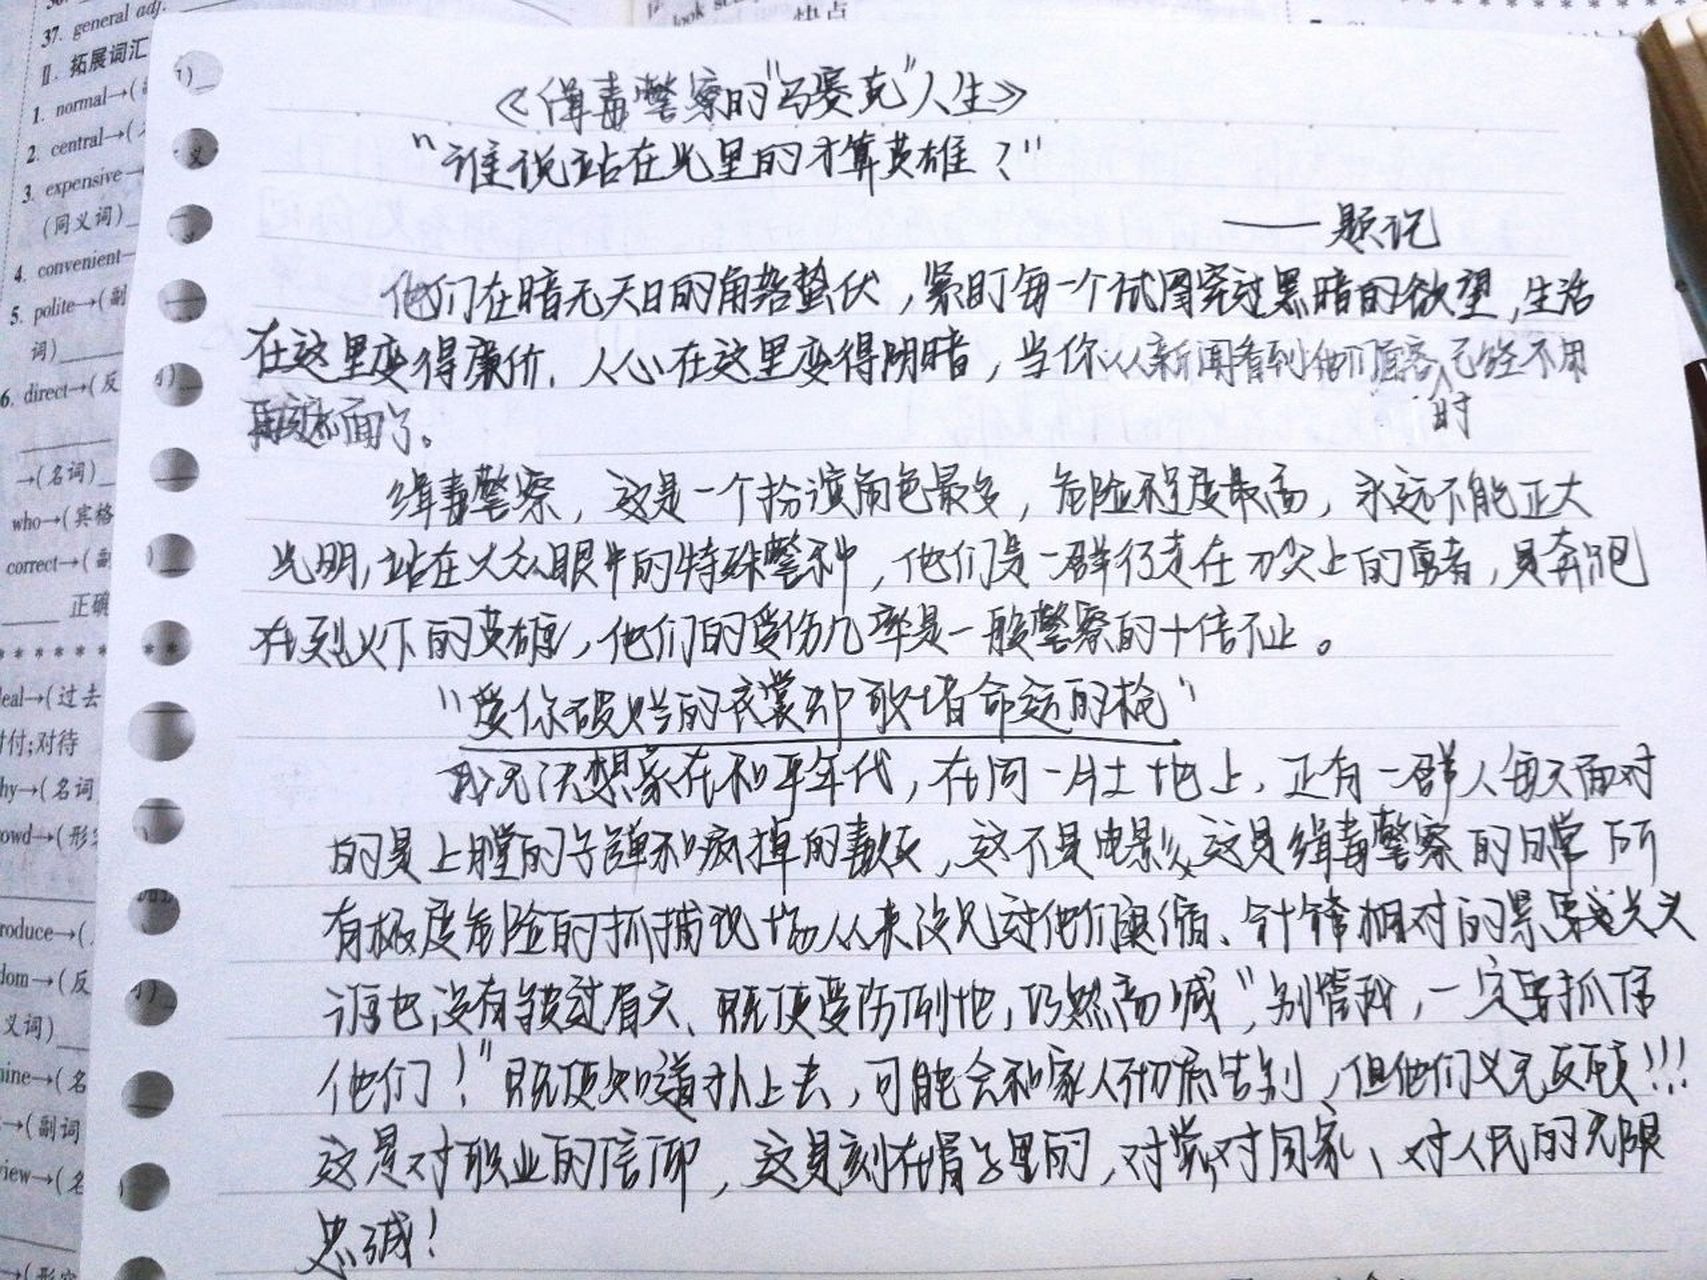 37. general adj.
II. 拓展词汇
1. normal→(
2. central→(
3. expensive→
(同义词)
4. convenient→
5. polite→(副
词)
6. direct→(反
→(名词)
who→(宾格
correct→(副
正确
eal→(过去
付;对待
hy→(名词
owd→(形
roduce→(
dom→(反
义词)
ine→(名
→(副词
view→(名
→(形容
look
快点
《缉毒警察的“马赛克”人生》
“谁说站在光里的才算英雄？”
——题记
他们在暗无天日的角落蛰伏，紧盯每一个试图穿过黑暗的欲望,生活
在这里变得廉价，人心在这里变得阴暗，当你从新闻看到他们面容时已经不用
再遮面了。
缉毒警察，这是一个扮演角色最多，危险程度最高，永远不能正大
光明,站在大众眼中的特殊警种，他们是一群行走在刀尖上的勇者，是奔跑
在烈火下的英雄，他们的受伤几率是一般警察的十倍不止。
“爱你破烂的衣裳却敢堵命运的枪”
我无法想象在和平年代，在同一片土地上，正有一群人每天面对
的是上膛的子弹和疯掉的毒贩，这不是电影，这是缉毒警察的日常 所
有极度危险的抓捕现场从来没见过他们退缩、针锋相对的
词也没有皱过眉头、既使受伤倒地，仍然高喊“别管我，一定要抓住
他们！”既使知道扑上去，可能会和家人告别，但他们义无反顾!!!
这是对职业的信仰，这是刻在骨子里的,对党,对国家、对人民的无限
忠诚！